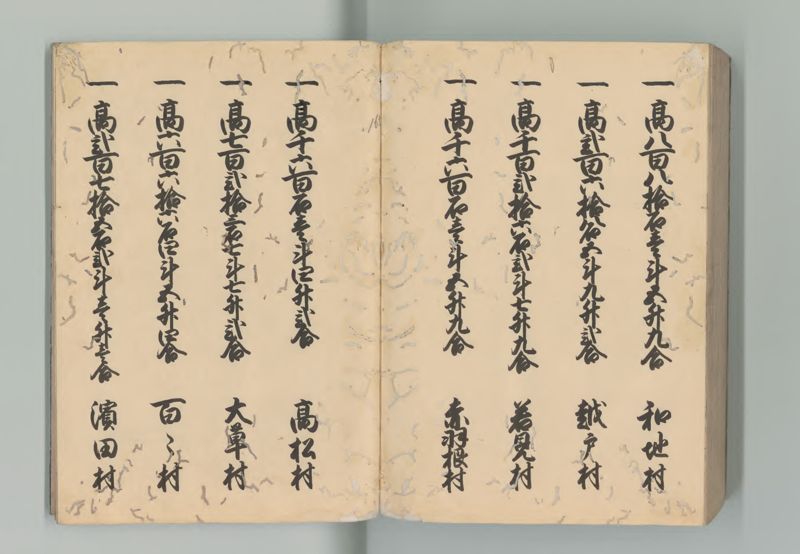 一 高八百八拾石壱斗五升九合 和地村
一 高弐百六拾石五斗九升弐合 越戸村
一 高千百弐拾六石弐斗七升九合 若見村
一 高千六百石壱斗五升九合 赤羽根村
一 高千六百石壱斗四升弐合 高松村
一 高七百弐拾石七斗七升弐合 大草村
一 高六百六拾六石四斗五升四合 百々村
一 高弐百七拾五石弐斗壱升壱合 濱田村